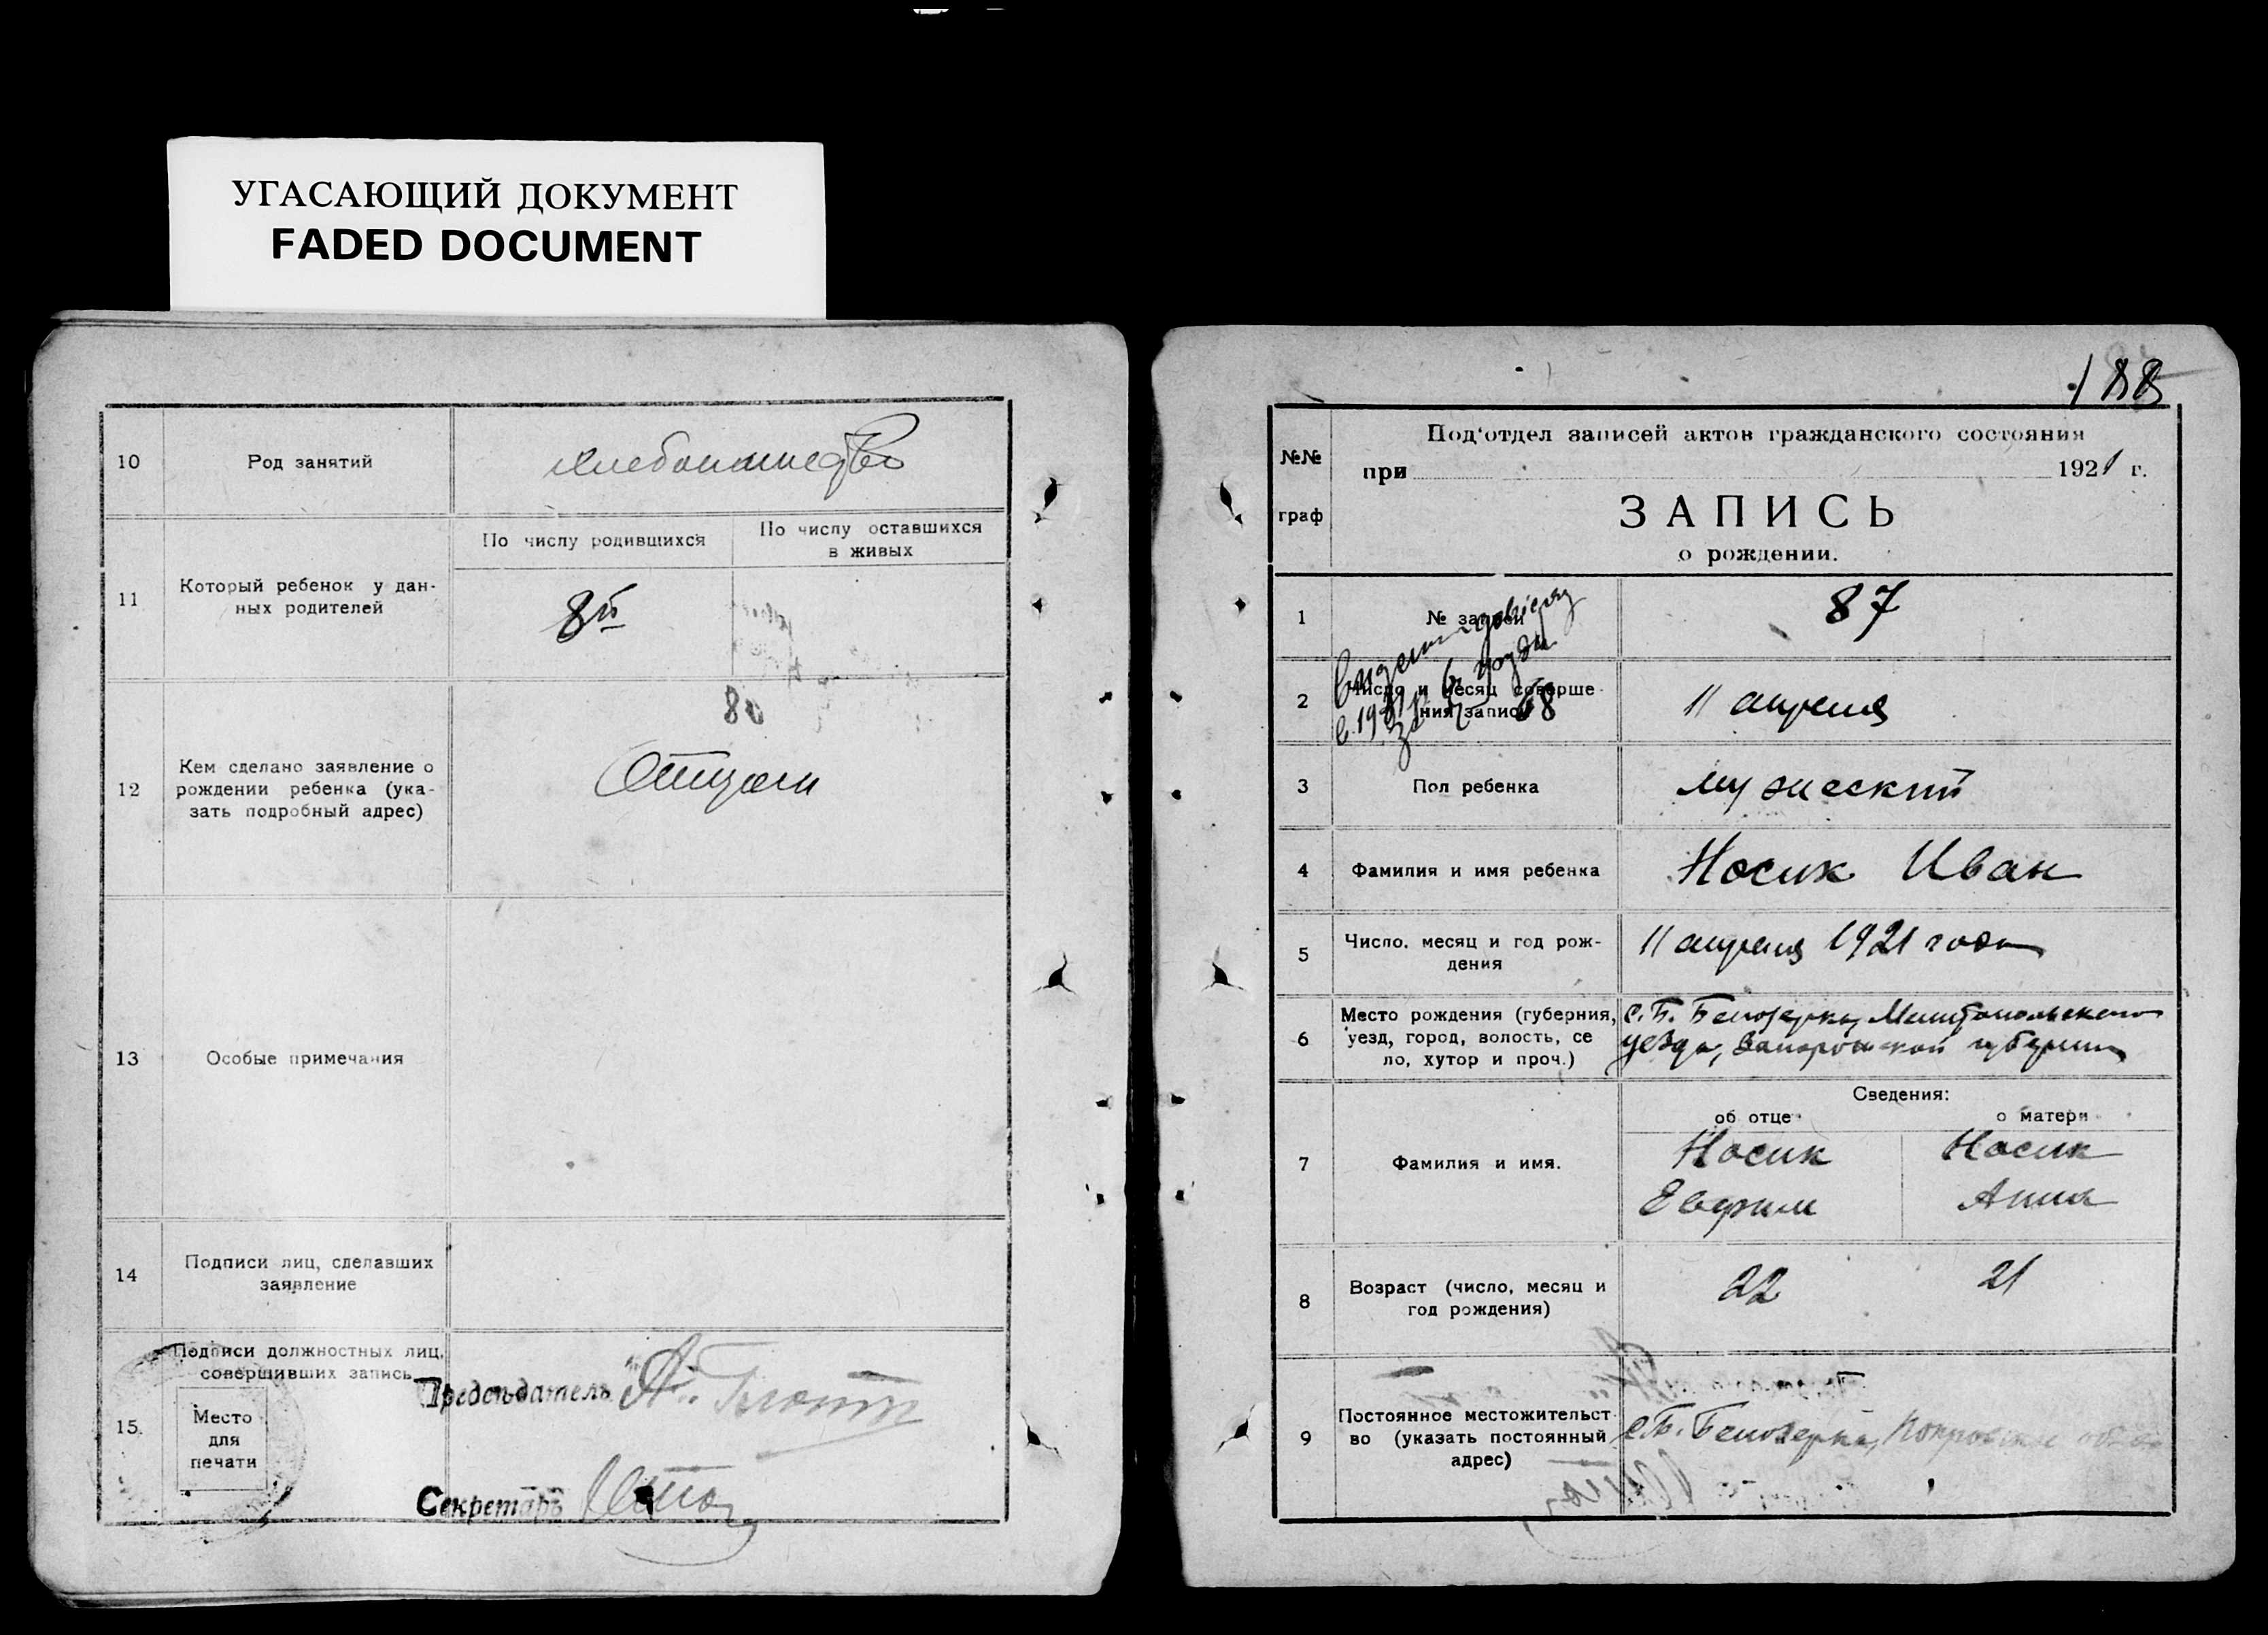 УГАСАЮЩИЙ ДОКУМЕНТ
FADED DOCUMENT
10
Род занятий
хлебопашество
11
Который ребенок у дан-
ных родителей
По числу родившихся
По числу оставшихся
в живых
8й
80
12
Кем сделано заявление о
рождении ребенка (ука-
зать подробный адрес)
Отцом
13
Особые примечания
14
Подписи лиц, сделавших
заявление
15.
Подписи должностных лиц,
совершивших запись
Место
для
печати
Председатель
Секретарь
188
№№
граф
Под'отдел записей актов гражданского состояния
при 1921 г.
ЗАПИСЬ
о рождении.
1
№ записи
87
2
Число и месяц соверше-
ния записи
68
11 апреля
3
Пол ребенка
мужеский
4
Фамилия и имя ребенка
Носик Иван
5
Число, месяц и год рож-
дения
11 апреля 1921 года
6
Место рождения (губерния,
уезд, город, волость, се
ло, хутор и проч.)
с. Б. Белозерка, Мелитопольского
уезда, Запорожской губернии
Сведения:
об отце
о матери
7
Фамилия и имя.
Носик
Евфим
Носик
Анна
8
Возраст (число, месяц и
год рождения)
22
21
9
Постоянное местожительст
во (указать постоянный
адрес)
с. Б. Белозерка,